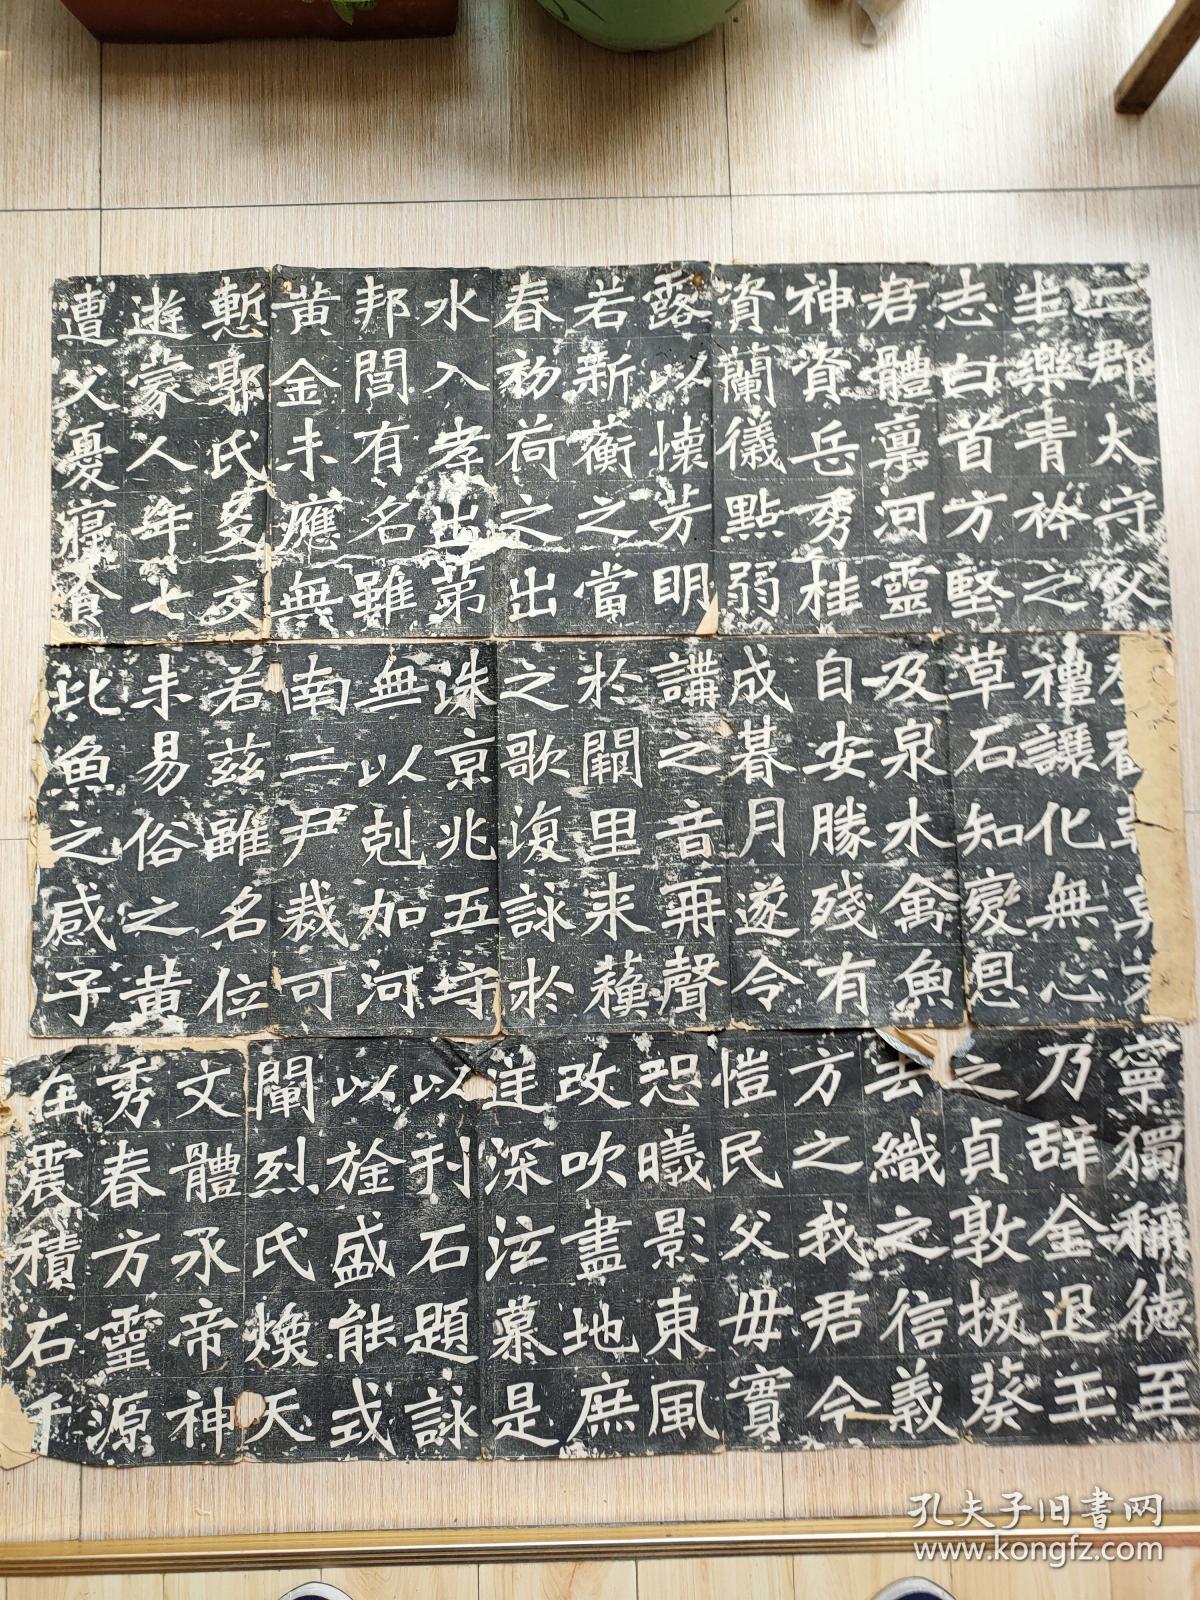 二郡太守父
生樂青衿之
志白首方堅
君體稟河靈
神資岳秀桂
資蘭儀點弱
露以懷芳明
若新蘅之當
春初荷之出
水入孝出第
邦閭有名雖
黃金未應無
慙郭氏友交
遊蒙人年七
遭父憂寢食
禮讓化無心
草石知變恩
及泉木禽魚
自安勝殘有
成朞月遂令
講之音再聲
於闕里来蘓
之歌復詠於
洙京兆五守
無以剋加河
南二尹裁可
若茲雖名位
未易俗之黃
此魚之感子
寧獨稱德至
乃辞金退玉
之貞敦扳葵
去織之信義
方之我君今
愷民父毋實
恐曦影東風
改吹盡地庶
逹深泣慕是
以刋石題詠
以旌盛能或
闡烈氏煥天
文體承帝神
秀春方靈源
在震積石千
孔夫子旧書网
www.kongfz.com